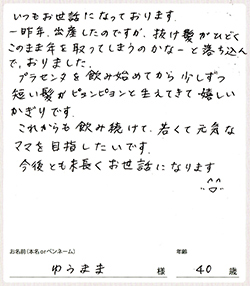 いつもお世話になっております.
一昨年.出産したのですが.抜け髪がひどく
このまま年を取ってしまうのかなーと落ち込ん
で.おりました.
プラセンタを飲み始めてから少しずつ
短い髪がピョンピョンと生えてきて嬉しい
かぎりです.
これからも飲み続けて.若くて元気な
ママを目指したいです.
今後とも末長くお世話になります
お名前(本名orペンネーム)
年齢
ゆうまま 様 40 歳